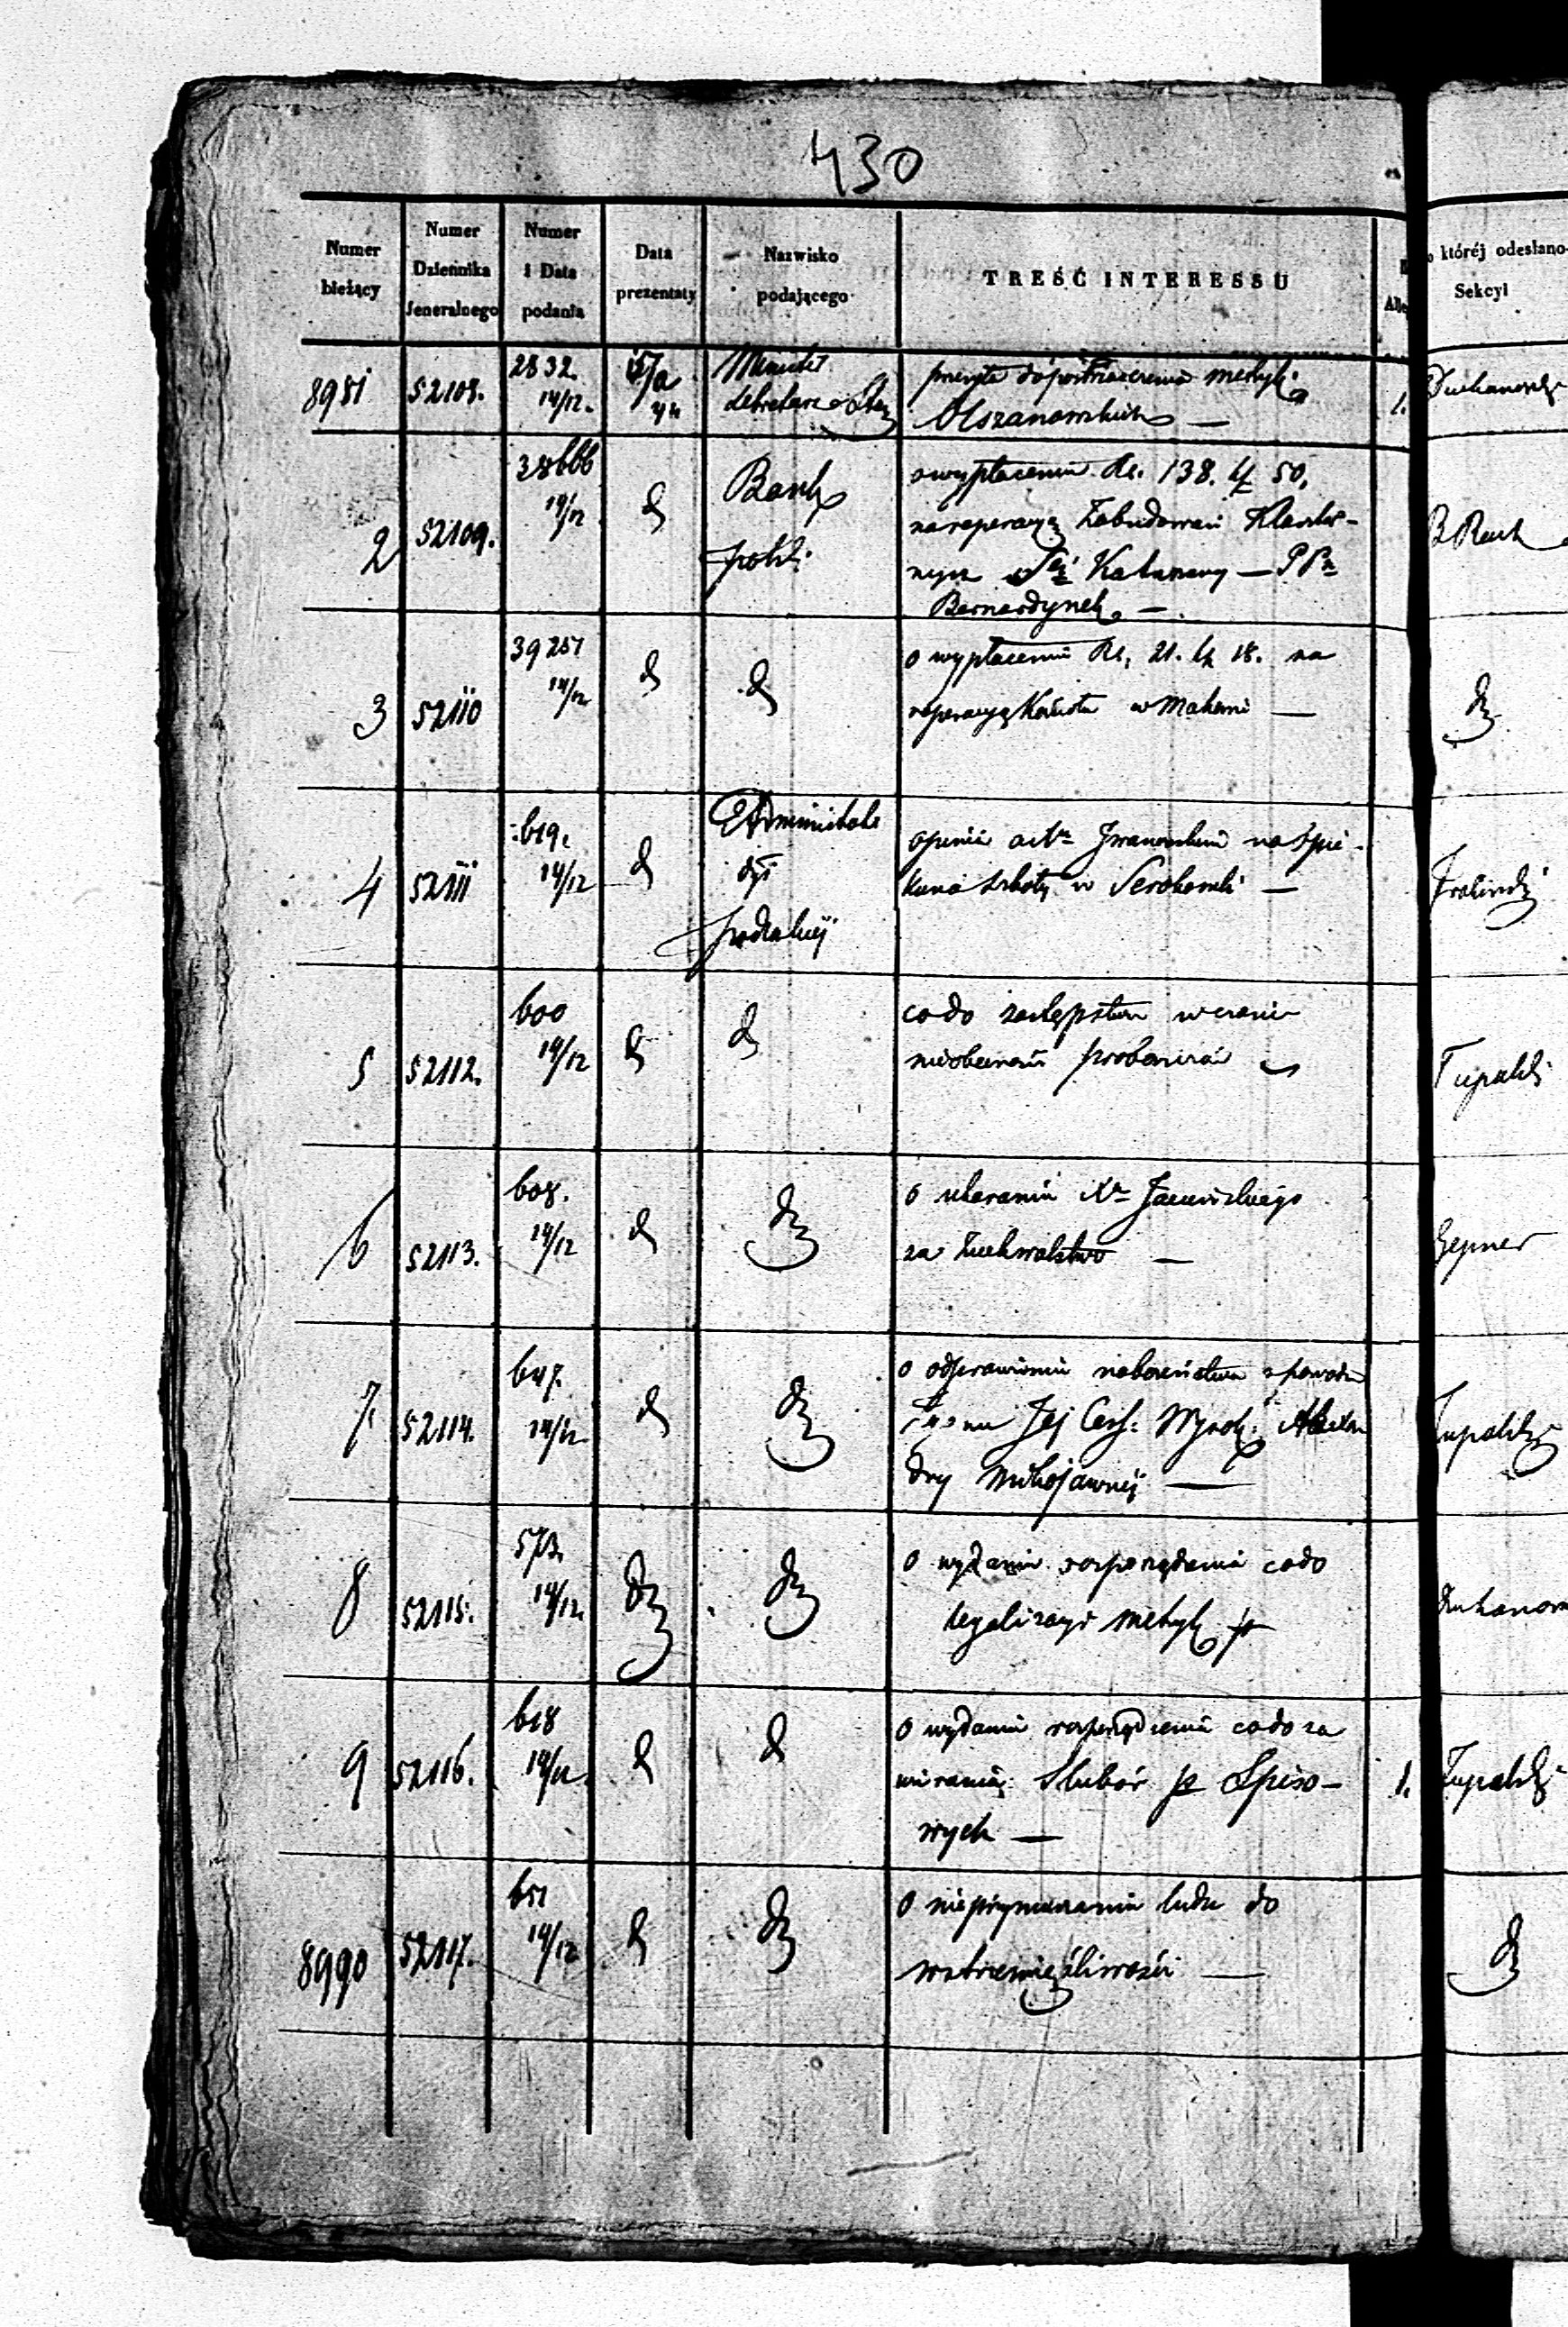 430
Numer bieżący
Numer Dziennika Jeneralnego
Numer i Data podania
Data prezentaty
Nazwisko podającego
TREŚĆ INTERESSU
któréj odesłano
Sekcyi
8981 52108. 2832. 14/12. Minister Sekretarz Stanu
Olszanowskich — 1.
2 52109. 38666 14/12 d Bank polski
o wypłacenie Rs. 138. k 50,
na reperacyą Zabudowań Klasztor-
nych Katarzyny — PPn
Bernardynek —
3 52110 39251 14/12 d d
o wypłacenie Rs. 21. k 18. na
reperacyą Kościoła w Makowie —
4 52111 619. 14/12 d Administrator dyi podlaskiej
opinia Iwanowskim na Opie-
kuna szkoły w Serokomli —
5 52112. 600 14/12 d d
co do zastępstwa w czasie
nieobecności proboszcza
Tupalski
6 52113. 608. 14/12 d d
o ukaranie Xa
za zuchwalstwo —
Hepner
7. 52114. 647. 14/12 d d
o odprawienie nabożeństwa z powodu
zgonu Jej Ces: Wysok: Alexan
dry Mikołajewnej —
Tupalski
8 52115. 573. 14/12. d d
o wydanie rozporządzenia co do
legalizacyi metryk
9 52116. 618 14/12 d d
o wydanie rozporządzenia co do za
wierania Slubów Spiso-
wych —
1. Tupalski
8990 52117. 651 14/12 d d
o nieprzymuszanie ludu do
wstrzemięźliwości —
d